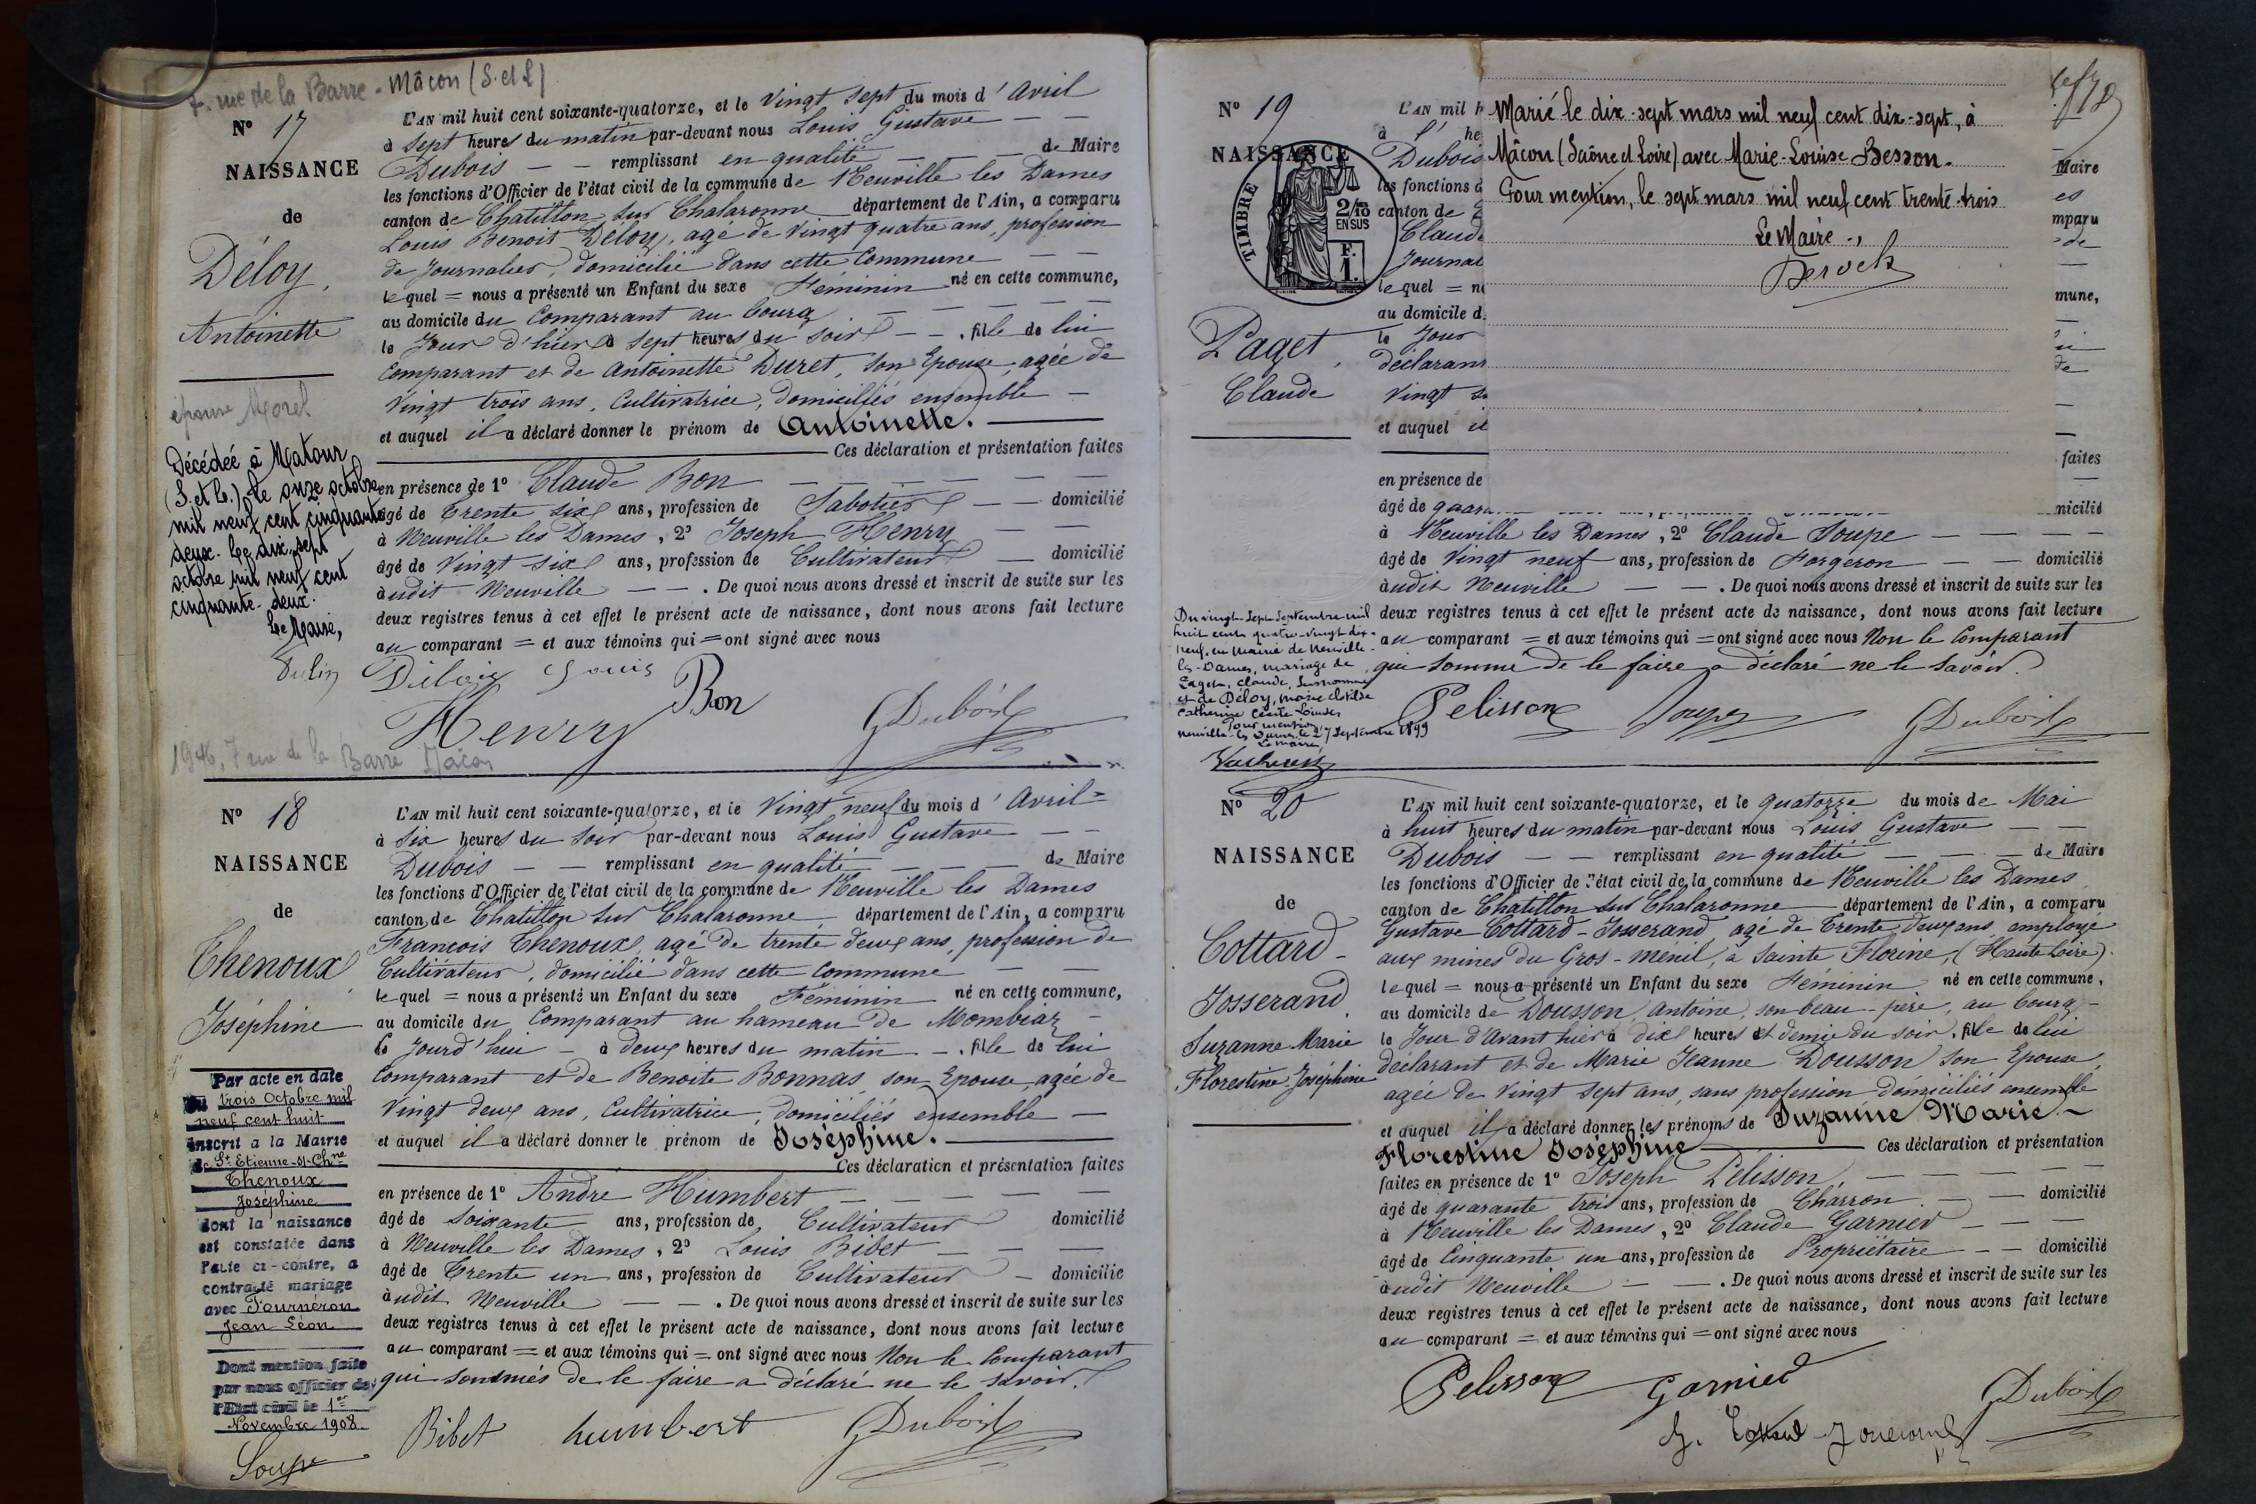 7. rue de la Barre - Mâcon (S. et L)
N° 17
NAISSANCE
de
Déloy,
Antoinette
épouse Morel
Décédée à Matour
(S. et L.) le onze octobre
mil neuf cent cinquante
deux. Le dix-sept
octobre mil neuf cent
cinquante-deux.
Le Maire,
L'AN mil huit cent soixante-quatorze, et le Vingt Sept du mois d' Avril
à Sept heures du matin par-devant nous Louis Gustave
Dubois remplissant en qualité de Maire
les fonctions d'Officier de l'état civil de la commune de Neuville les Dames
canton de Chatillon sur Chalaronne département de l'Ain, a comparu
Louis Benoit Déloy, agé de vingt quatre ans, profession
de Journalier, domicilié dans cette Commune
lequel = nous a présenté un Enfant du sexe Féminin né en cette commune,
au domicile du Comparant au bourg
le Jour d'hier à sept heures du soir . fille de lui
Comparant et de Antoinette Duret, son Epouse, agée de
Vingt trois ans, Cultivatrice, domiciliés ensemble
et auquel il a déclaré donner le prénom de Antoinette.
Ces déclaration et présentation faites
en présence de 1° Claude Bon
âgé de Trente six ans, profession de Sabotier domicilié
à Neuville les Dames, 2° Joseph Henry
âgé de Vingt six ans, profession de Cultivateur domicilié
audit Neuville . De quoi nous avons dressé et inscrit de suite sur les
deux registres tenus à cet effet le présent acte de naissance, dont nous avons fait lecture
au comparant = et aux témoins qui = ont signé avec nous
Louis
Bon
Henry
GDubois
1946, 7 rue de la Barre Mâcon
N° 18
NAISSANCE
de
Thenoux,
Joséphine
Par acte en date
du trois Octobre mil
neuf cent huit
inscrit a la Mairie
de St Etienne-s/-Chne
Thenoux
Joséphine
dont la naissance
est constatée dans
l'acte ci-contre, a
contracté mariage
avec Fournéron
Jean Léon
Dont mention faite
par nous officier de
l'Etat civil le 1er
Novembre 1908.
Soupe
L'AN mil huit cent soixante-quatorze, et le Vingt neuf du mois d' Avril
à Six heures du Soir par-devant nous Louis Gustave
Dubois remplissant en qualité de Maire
les fonctions d'Officier de l'état civil de la commune de Neuville les Dames
canton de Chatillon sur Chalaronne département de l'Ain, a comparu
François Thenoux, agé de trente deux ans, profession de
Cultivateur, domicilié dans cette Commune
lequel = nous a présenté un Enfant du sexe Féminin né en cette commune,
au domicile du Comparant au hameau de Mombiaz
le Jourd'hui à deux heures du matin . fille de lui
Comparant et de Benoite Bonnas, son Epouse, agée de
Vingt deux ans, Cultivatrice, domiciliés ensemble
et auquel il a déclaré donner le prénom de Joséphine.
Ces déclaration et présentation faites
en présence de 1° André Humbert
âgé de Soixante ans, profession de Cultivateur domicilié
à Neuville les Dames, 2° Louis Bibet
âgé de Trente un ans, profession de Cultivateur domicilié
audit Neuville . De quoi nous avons dressé et inscrit de suite sur les
deux registres tenus à cet effet le présent acte de naissance, dont nous avons fait lecture
au comparant = et aux témoins qui = ont signé avec nous Non le Comparant
qui sommés de le faire a déclaré ne le savoir.
Bibet humbert GDubois
N° 19
NAISSANCE
TIMBRE
2/10
EN SUS
F.
1.
Paget,
Claude
Du vingt-sept Septembre mil
huit cent quatre-vingt-dix-
neuf, en Mairie de Neuville-
les-Dames, mariage de
Paget, Claude, susnommé
et de Déloy, Marie Clotilde
Catherine
Pour mention
Neuville-les-Dames, le 27 Septembre 1899
Le Maire
Marié le dix-sept mars mil neuf cent dix-sept, à
Mâcon (Saône et Loire) avec Marie-Louise Besson.
Pour mention, le sept mars mil neuf cent trente-trois
Le Maire.,
L'AN mil h
à
he
Dubois
Maire
les fonctions d
es
canton de
mparu
Claude
de
Journal
lequel = n
mune,
au domicile d
le Jour
déclarant
de
Vingt
et auquel il
faites
en présence de
âgé de quara
micilié
à Neuville les Dames, 2° Claude Soupe
âgé de Vingt neuf ans, profession de Forgeron domicilié
audit Neuville . De quoi nous avons dressé et inscrit de suite sur les
deux registres tenus à cet effet le présent acte de naissance, dont nous avons fait lecture
au comparant = et aux témoins qui = ont signé avec nous Non le Comparant
qui sommé de le faire a déclaré ne le savoir.
Pelisson Soupe GDubois
N° 20
NAISSANCE
de
Cottard-
Josserand,
Suzanne Marie
Florestine Joséphine
L'AN mil huit cent soixante-quatorze, et le quatorze du mois de Mai
à huit heures du matin par-devant nous Louis Gustave
Dubois remplissant en qualité de Maire
les fonctions d'Officier de l'état civil de la commune de Neuville les Dames
canton de Chatillon sur Chalaronne département de l'Ain, a comparu
Gustave Cottard-Josserand agé de Trente deux ans employé
aux mines du Gros-ménil, à Sainte Florine, (Haute Loire).
lequel = nous a présenté un Enfant du sexe Féminin né en cette commune,
au domicile de Dousson, Antoine, son beau-père, au bourg
le Jour d'avant hier à dix heures et demie du soir, fille de lui
déclarant et de Marie Jeanne Dousson son Epouse,
agée de Vingt sept ans, sans profession, domiciliés ensemble
et auquel il a déclaré donner les prénoms de Suzanne Marie
Florestine Joséphine Ces déclaration et présentation
faites en présence de 1° Joseph Pélisson
âgé de quarante trois ans, profession de Charron domicilié
à Neuville les Dames, 2° Claude Garnier
âgé de Cinquante un ans, profession de Propriétaire domicilié
audit Neuville . De quoi nous avons dressé et inscrit de suite sur les
deux registres tenus à cet effet le présent acte de naissance, dont nous avons fait lecture
au comparant = et aux témoins qui = ont signé avec nous
Pelisson Garnier GDubois